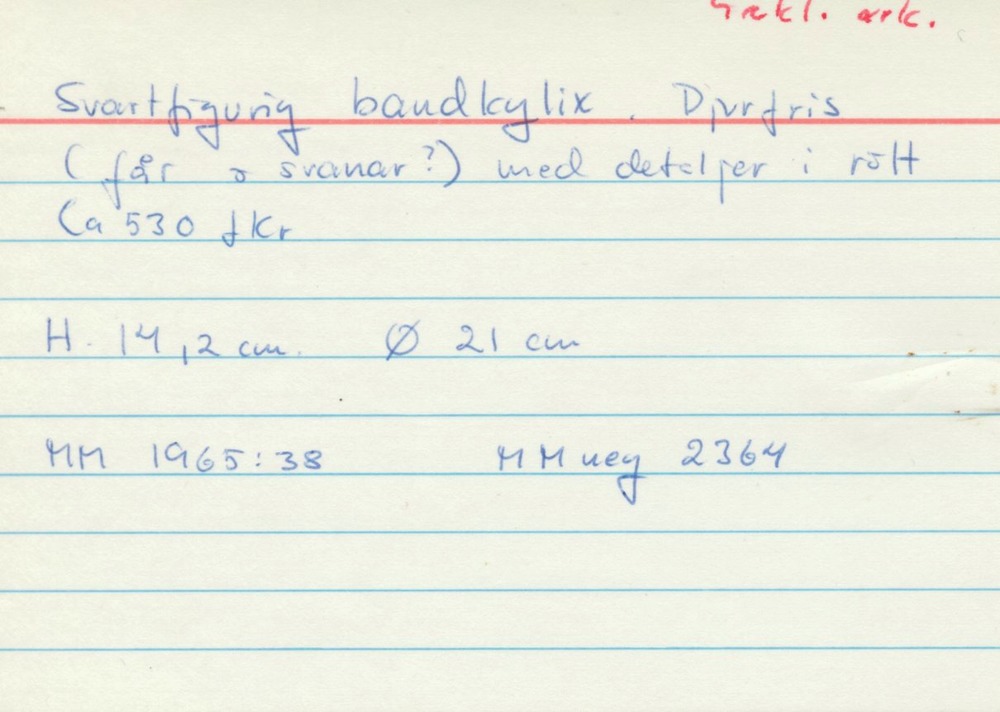 Grekl. ark.
Svartfigurig bandkylix. Djurfris
(får o svanar?) med detaljer i rött
Ca 530 fKr
H. 14,2 cm. Ø 21 cm
MM 1965:38 MM neg 2364